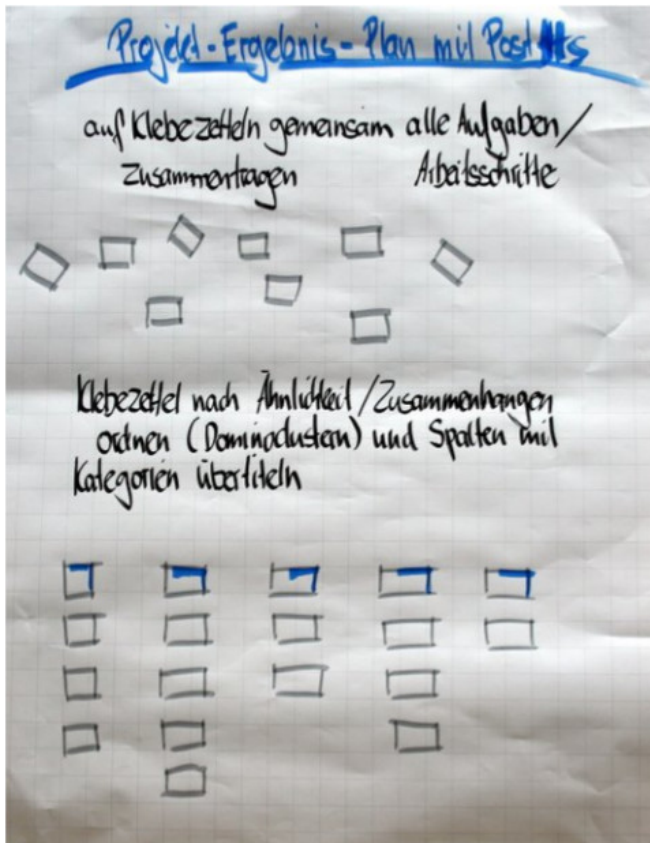 Projekt-Ergebnis-Plan mit Post Its
auf Klebezetteln gemeinsam alle Aufgaben/
zusammentragen Arbeitsschritte
Klebezettel nach Ähnlichkeit/Zusammenhängen
ordnen (Dominoclustern) und Spalten mit
Kategorien übertiteln